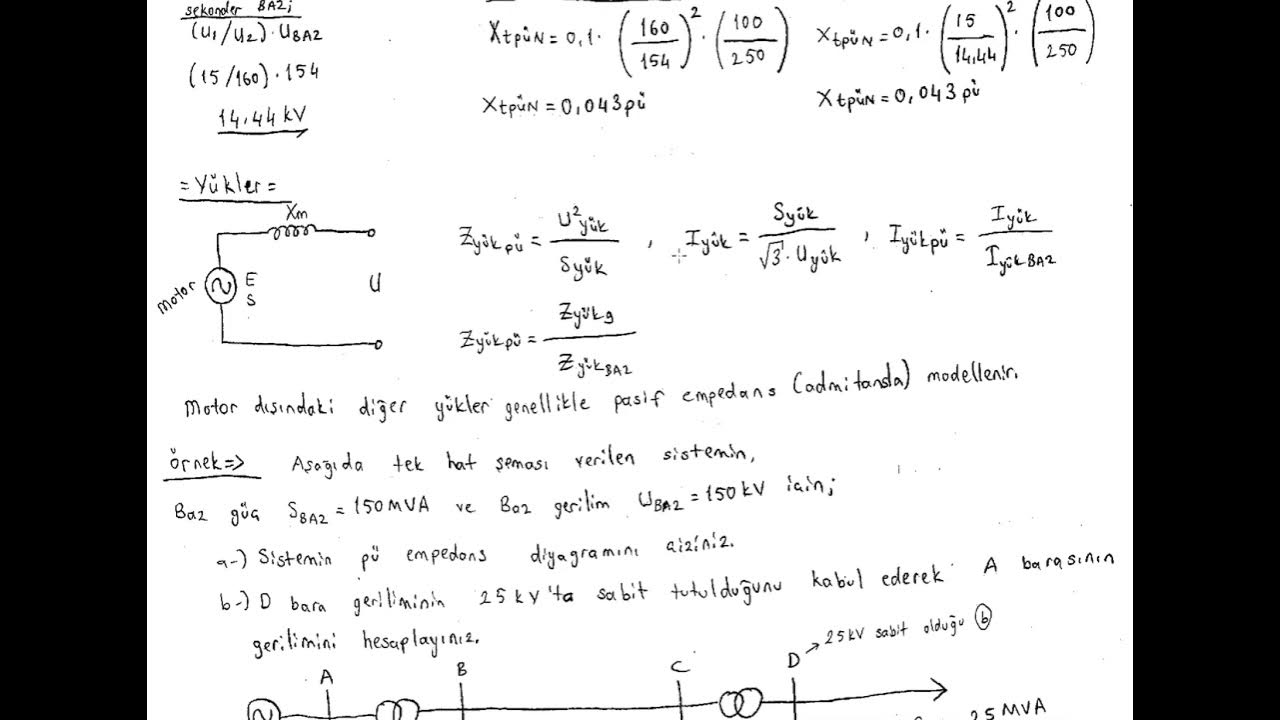 sekonder BAZ;
(U₁/U₂)·U_BAZ
(15/160)·154
14,44 kV
X_tpüN = 0,1·(160/154)²·(100/250)
X_tpüN = 0,043 pü
X_tpüN = 0,1·(15/14,44)²·(100/250)
X_tpüN = 0,043 pü
= Yükler =
Xm
motor
E
S
U
Z_yükpü = U²yük / Syük , I_yük = Syük / √3·Uyük , I_yükpü = I_yük / I_yükBAZ
Z_yükpü = Z_yükg / Z_yükBAZ
Motor dışındaki diğer yükler genellikle pasif empedans (admitansla) modellenir.
örnek=> Aşağıda tek hat şeması verilen sistemin,
Baz güç S_BAZ = 150 MVA ve Baz gerilim U_BAZ = 150 kV için;
a-) Sistemin pü empedans diyagramını çiziniz.
b-) D bara geriliminin 25 kV'ta sabit tutulduğunu kabul ederek A barasının
gerilimini hesaplayınız.
25kV sabit olduğu (b)
A B C D
25 MVA